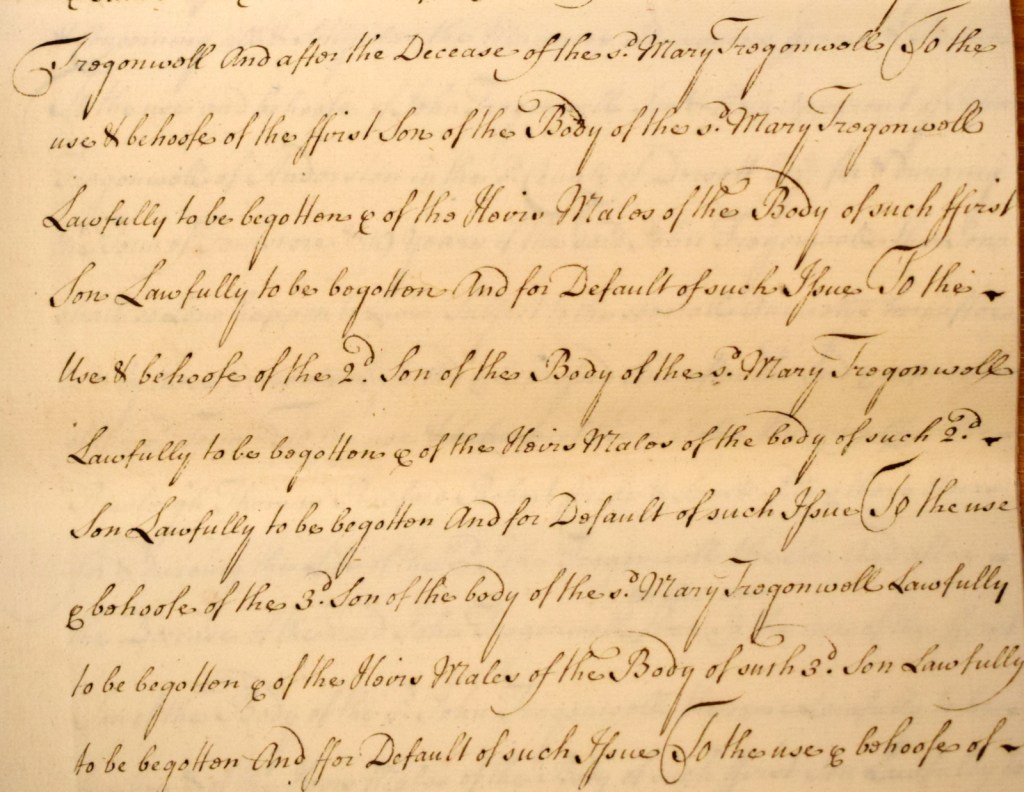 Tregonwell And after the Decease of the sd. Mary Tregonwell To the
use & behoofe of the ffirst Son of the Body of the sd. Mary Tregonwell
Lawfully to be begotten & of the Heirs Males of the Body of such ffirst
Son Lawfully to be begotten And for Default of such Issue To the
Use & behoofe of the 2d. Son of the Body of the sd. Mary Tregonwell
Lawfully to be begotten & of the Heirs Males of the body of such 2d.
Son Lawfully to be begotten And for Default of such Issue To the use
& behoofe of the 3d. Son of the body of the sd. Mary Tregonwell Lawfully
to be begotten & of the Heirs Males of the Body of such 3d. Son Lawfully
to be begotten And ffor Default of such Issue To the use & behoofe of